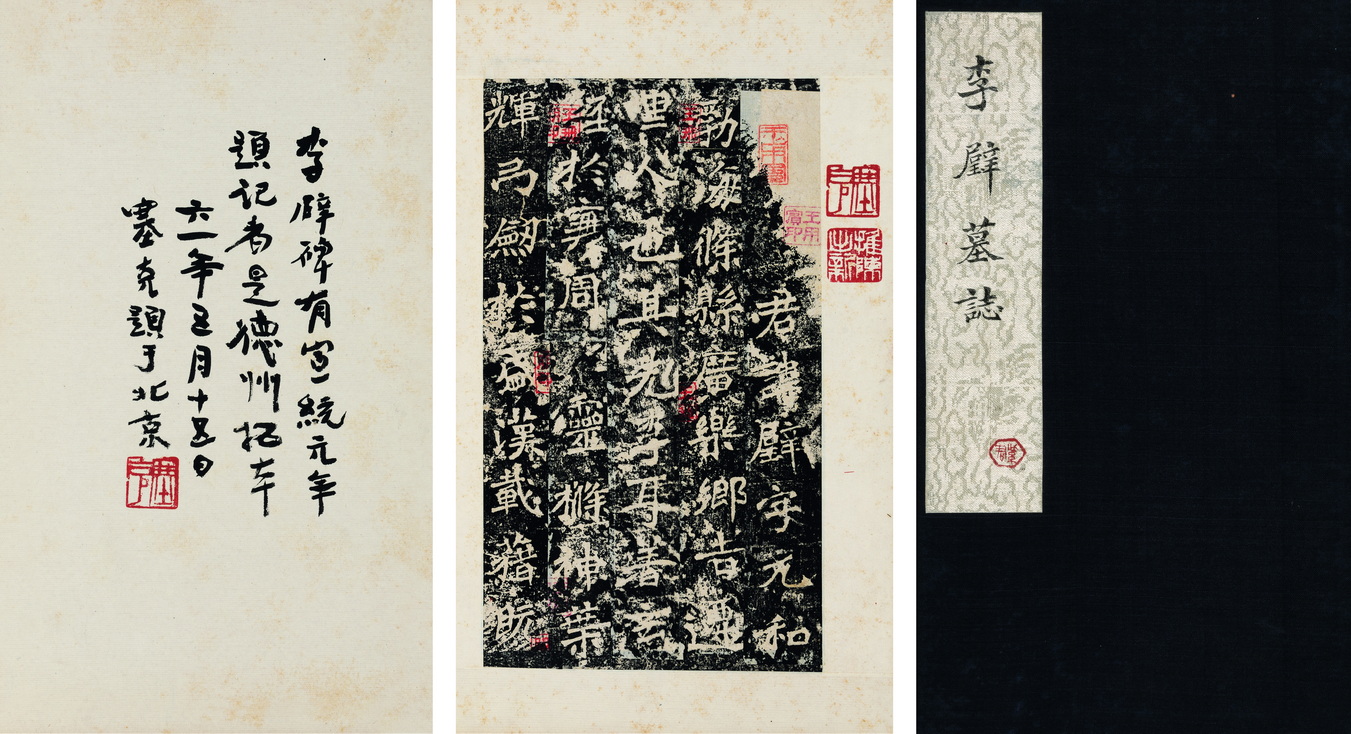 李璧墓誌
君諱璧字元和
勃海條縣廣樂鄉吉遷
里人也其先李耳著玄
經於周靈神葉
輝弓劒於盛漢載藉昞
塞克
推陳出新
李璧碑有宣統元年
題記者是德州拓本
六一年五月十五日
塞克題于北京
塞克